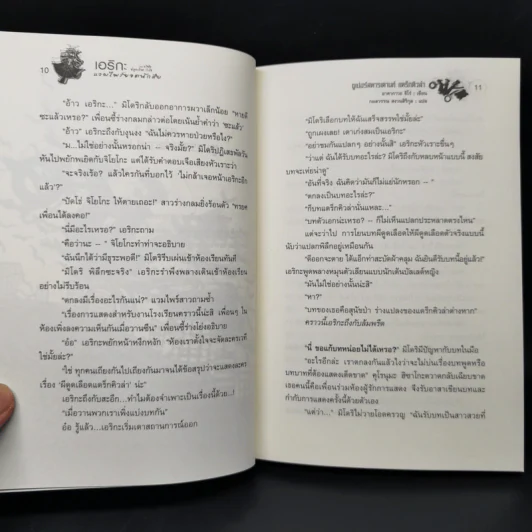 10
เอริกะ
"อ้าว เอริกะ..." มิโดริกลับออกอาการผวาเล็กน้อย "หายดี
ซะแล้วเหรอ?" เพื่อนซี้ร่างกลมกล่าวต่อโดยเน้นย้ำคำว่า 'ซะแล้ว'
"อ้าว" เอริกะถึงกับงุนงง "ฉันไม่ควรหายป่วยหรือไง?"
"ม...ไม่ใช่อย่างนั้นหรอกน่า – จริงมั้ย?" มิโดริปฏิเสธพัลวัน
หันไปพยักพเยิดกับจิโยโกะ แต่ได้รับคำตอบเจือเสียงหัวเราะว่า
"จะจริงเร้อ? แล้วใครกันที่บอกไว้ 'ไม่กล้าเจอหน้าเอริกะอีก
แล้ว'?"
"ปัดโธ่ จิโยโกะ ให้ตายเถอะ!" สาวร่างกลมยิ่งร้อนตัว "ทรยศ
เพื่อนได้ลงคอ!"
"นี่มีอะไรเหรอ?" เอริกะถาม
"คือว่านะ – " จิโยโกะทำท่าจะอธิบาย
"ฉันนึกได้ว่ามีธุระพอดี!" มิโดริรีบเผ่นเข้าห้องเรียนทันที
"มิโดริ พิลึกซะจริง" เอริกะรำพึงพลางเดินเข้าห้องเรียน
อย่างไม่รีบร้อน
"ตกลงมีเรื่องอะไรกันแน่?" แวมไพร์สาวถามซ้ำ
"เรื่องการแสดงสำหรับงานโรงเรียนคราวนี้น่ะสิ เพื่อนๆ ใน
ห้องเพิ่งลงความเห็นกันเมื่อวานซืน" เพื่อนซี้ร่างโย่งอธิบาย
"อ้อ" เอริกะพยักหน้าหงึกหงัก "ห้องเราตั้งใจจะจัดละครเวที
ใช่มั้ยล่ะ?"
"ใช่ ทุกคนเถียงกันไปเถียงกันมาจนได้ข้อสรุปว่าจะแสดงละคร
เรื่อง 'ผีดูดเลือดแดร็กคิวล่า' น่ะ"
เอริกะถึงกับสะอึก...ทำไมต้องจำเพาะเป็นเรื่องนี้ด้วย...!
"เมื่อวานพวกเราเพิ่งแบ่งบทกัน"
อ้อ รู้แล้ว...เอริกะเริ่มเดาสถานการณ์ออก
11
"มิโดริเลือกบทให้ฉันเสร็จสรรพใช่มั้ยล่ะ?"
"ถูกเผงเลย! เดาเก่งสมเป็นเอริกะ"
"อย่าชมกันแปลกๆ อย่างนั้นสิ" เอริกะหัวเราะขื่นๆ
"ว่าแต่ ฉันได้รับบทอะไรล่ะ? มิโดริถึงกับหลบหน้าแบบนี้ สงสัย
บทจะเห่ยน่าดู"
"อันที่จริง ฉันคิดว่ามันก็ไม่แย่นักหรอก – "
"ตกลงเป็นบทอะไรล่ะ?"
"ก็บทแดร็กคิวล่านั่นแหละ..."
"บทตัวเอกน่ะเหรอ? – ก็ไม่เห็นแปลกประหลาดตรงไหน"
แต่จะว่าไป การโยนบทผีดูดเลือดให้ผีดูดเลือดตัวจริงแบบนี้
นับว่าแปลกพิลึกอยู่เหมือนกัน
"ดีออกจะตาย ได้แอ๊กท่าสะบัดผ้าคลุม ฉันยินดีรับบทนี้อยู่แล้ว!"
เอริกะพูดพลางหมุนตัวเลียนแบบนักเต้นบัลเลต์หญิง
"มันไม่ใช่อย่างนั้นน่ะสิ"
"หา?"
"บทของเธอคือสุนัขป่า ร่างแปลงของแดร็กคิวล่าต่างหาก"
คราวนี้เอริกะถึงกับล้มพรืด
"นี่ ขอแก้บทหน่อยไม่ได้เหรอ?" มิโดริมีปัญหากับบทในมือ
"อะไรอีกล่ะ เราตกลงกันแล้วไงว่าจะไม่บ่นเรื่องบทพูดหรือ
บทบาทที่ต้องแสดงเด็ดขาด"
เธอคนนี้คือเพื่อนร่วมห้องผู้รักการแสดง จึงรับอาสาเขียนบทและ
กำกับการแสดงครั้งนี้ด้วยตัวเอง
"แต่ว่า..." มิโดริไม่วายโอดครวญ "ฉันรับบทเป็นสาวสวยที่